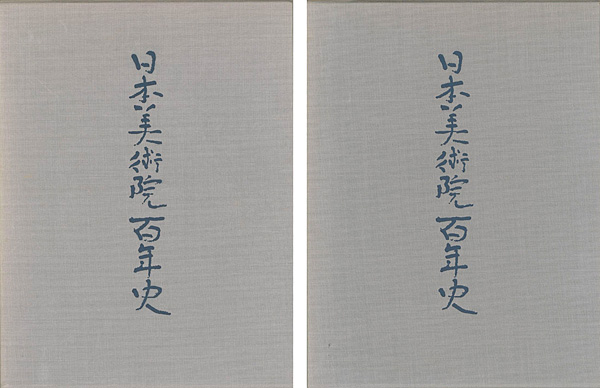 日本美術院百年史
日本美術院百年史